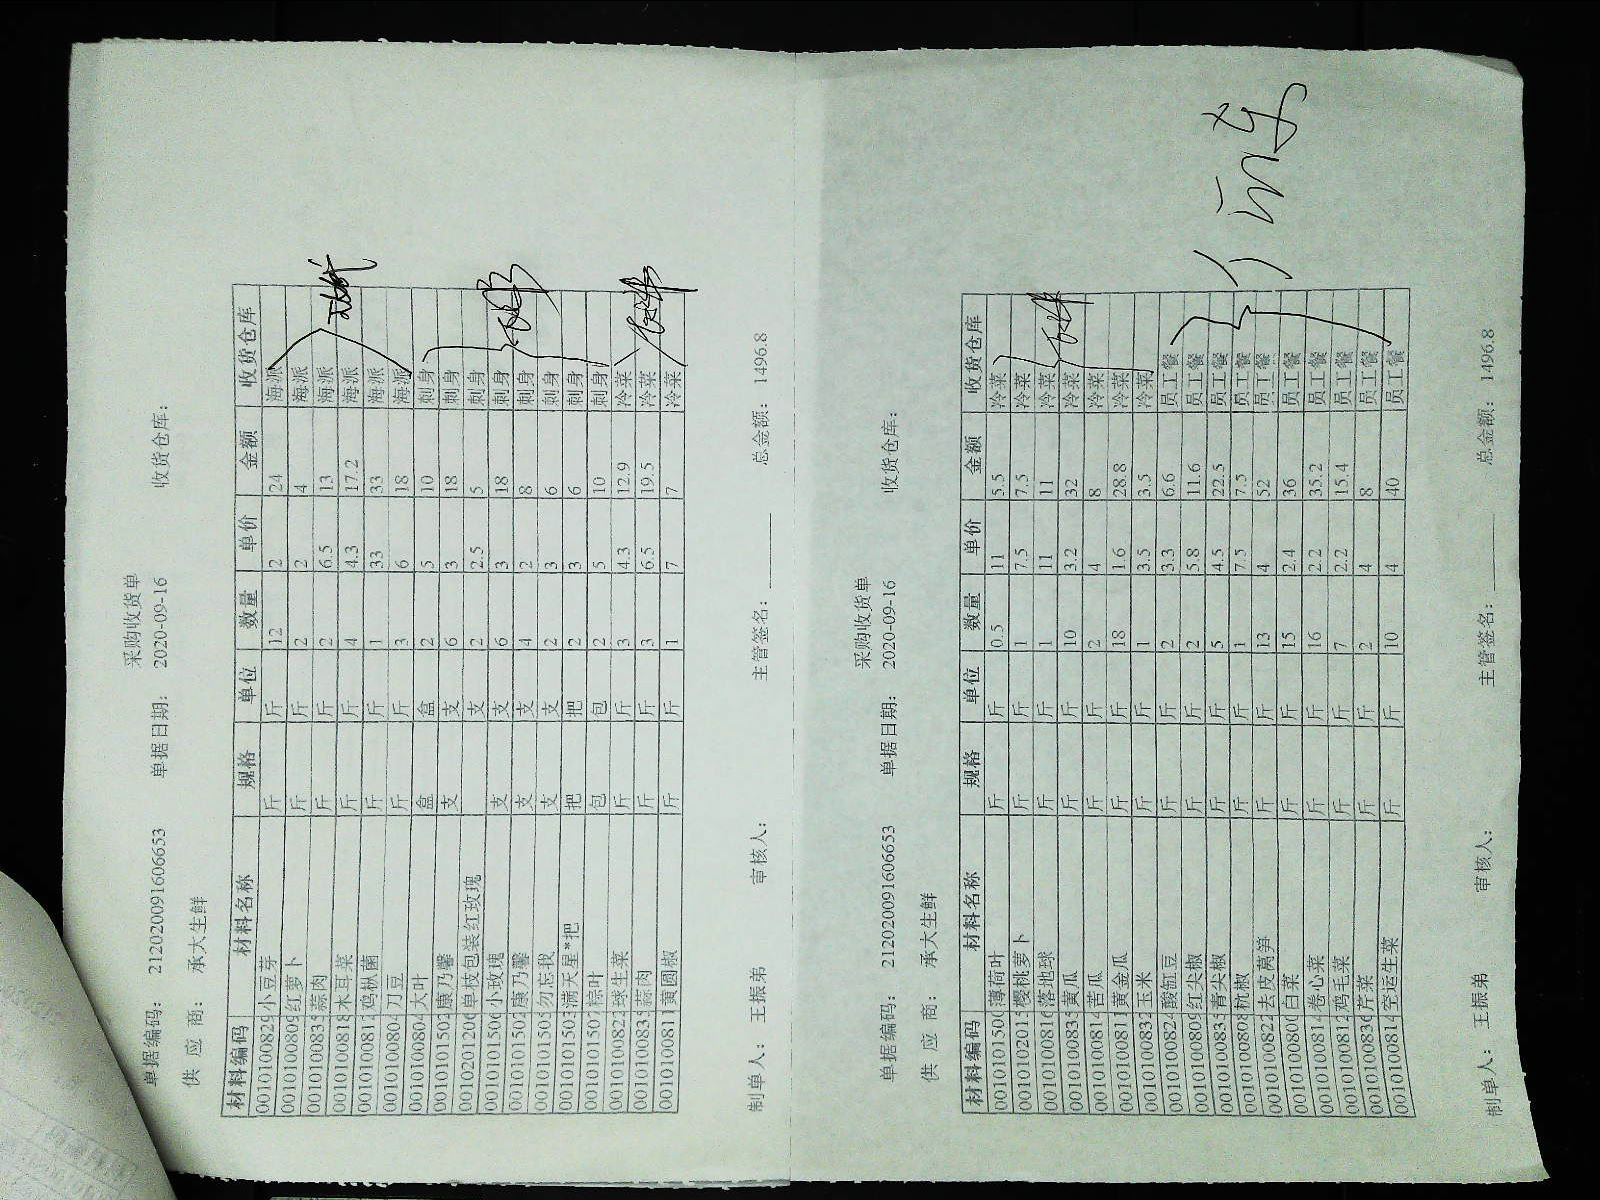 采购收货单
单据编码: 21202009160​6653 单据日期: 2020-09-16 收货仓库:
供 应 商: 承大生鲜
材料编码 材料名称 规格 单位 数量 单价 金额 收货仓库
0010100829 小豆芽 斤 斤 12 2 24 海派
0010100809 红萝卜 斤 斤 2 2 4 海派
001010083 蒜肉 斤 斤 2 6.5 13 海派
0010100818 木耳菜 斤 斤 4 4.3 17.2 海派
001010081 鸡枞菌 斤 斤 1 33 33 海派
0010100804 刀豆 斤 斤 3 6 18 海派
0010100804 大叶 盒 盒 2 5 10 刺身
0010101502 康乃馨 支 支 6 3 18 刺身
0010201206 单枝包装红玫瑰 支 2 2.5 5 刺身
0010101506 小玫瑰 支 支 6 3 18 刺身
0010101502 康乃馨 支 支 4 2 8 刺身
0010101505 勿忘我 支 支 2 3 6 刺身
0010101503 满天星*把 把 把 2 3 6 刺身
0010101507 棕叶 包 包 2 5 10 刺身
0010100822 球生菜 斤 斤 3 4.3 12.9 冷菜
0010100835 蒜肉 斤 斤 3 6.5 19.5 冷菜
0010100811 黄圆椒 斤 斤 1 7 7 冷菜
制单人: 王振弟 审核人: 主管签名: 总金额: 1496.8
采购收货单
单据编码: 212020091606653 单据日期: 2020-09-16 收货仓库:
供 应 商: 承大生鲜
材料编码 材料名称 规格 单位 数量 单价 金额 收货仓库
0010101500 薄荷叶 斤 斤 0.5 11 5.5 冷菜
0010102015 樱桃萝卜 斤 斤 1 7.5 7.5 冷菜
0010100816 落地球 斤 斤 1 11 11 冷菜
0010100835 黄瓜 斤 斤 10 3.2 32 冷菜
0010100814 苦瓜 斤 斤 2 4 8 冷菜
0010100811 黄金瓜 斤 斤 18 1.6 28.8 冷菜
0010100832 玉米 斤 斤 1 3.5 3.5 冷菜
0010100824 酸豇豆 斤 斤 2 3.3 6.6 员工餐
0010100809 红尖椒 斤 斤 2 5.8 11.6 员工餐
0010100835 青尖椒 斤 斤 5 4.5 22.5 员工餐
0010100808 杭椒 斤 斤 1 7.5 7.5 员工餐
0010100822 去皮莴笋 斤 斤 13 4 52 员工餐
0010100800 白菜 斤 斤 15 2.4 36 员工餐
0010100814 卷心菜 斤 斤 16 2.2 35.2 员工餐
0010100812 鸡毛菜 斤 斤 7 2.2 15.4 员工餐
0010100836 芹菜 斤 斤 2 4 8 员工餐
0010100814 空运生菜 斤 斤 10 4 40 员工餐
制单人: 王振弟 审核人: 主管签名: 总金额: 1496.8